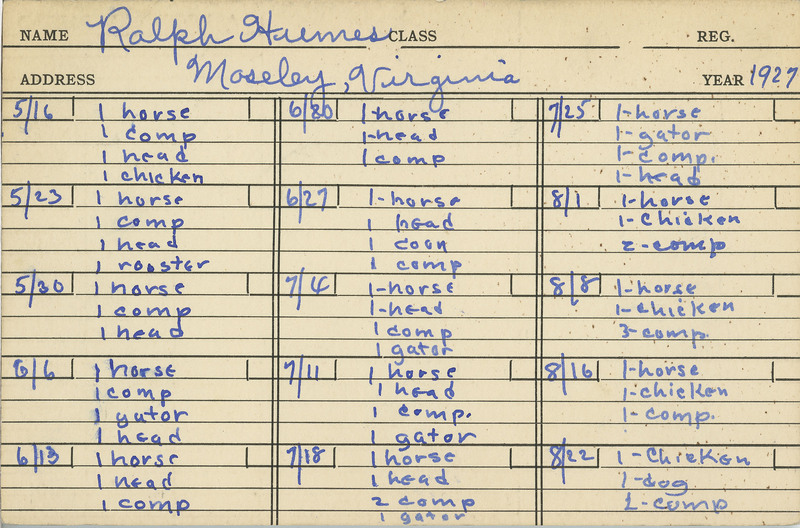 NAME Ralph Haemes CLASS REG.
ADDRESS Moseley, Virginia YEAR 1927
5/16 1 horse
1 comp
1 head
1 chicken
5/23 1 horse
1 comp
1 head
1 rooster
5/30 1 horse
1 comp
1 head
6/6 1 horse
1 comp
1 gator
1 head
6/13 1 horse
1 head
1 comp
6/20 1-horse
1-head
1 comp
6/27 1-horse
1 head
1 coon
1 comp
7/4 1-horse
1-head
1 comp
1 gator
7/11 1 horse
1 head
1 comp.
1 gator
7/18 1 horse
1 head
2 comp
1 gator
7/25 1-horse
1-gator
1-comp.
1-head
8/1 1-horse
1-chicken
2-comp
8/8 1-horse
1-chicken
3-comp.
8/16 1-horse
1-chicken
1-comp.
8/22 1-chicken
1-dog
1-comp